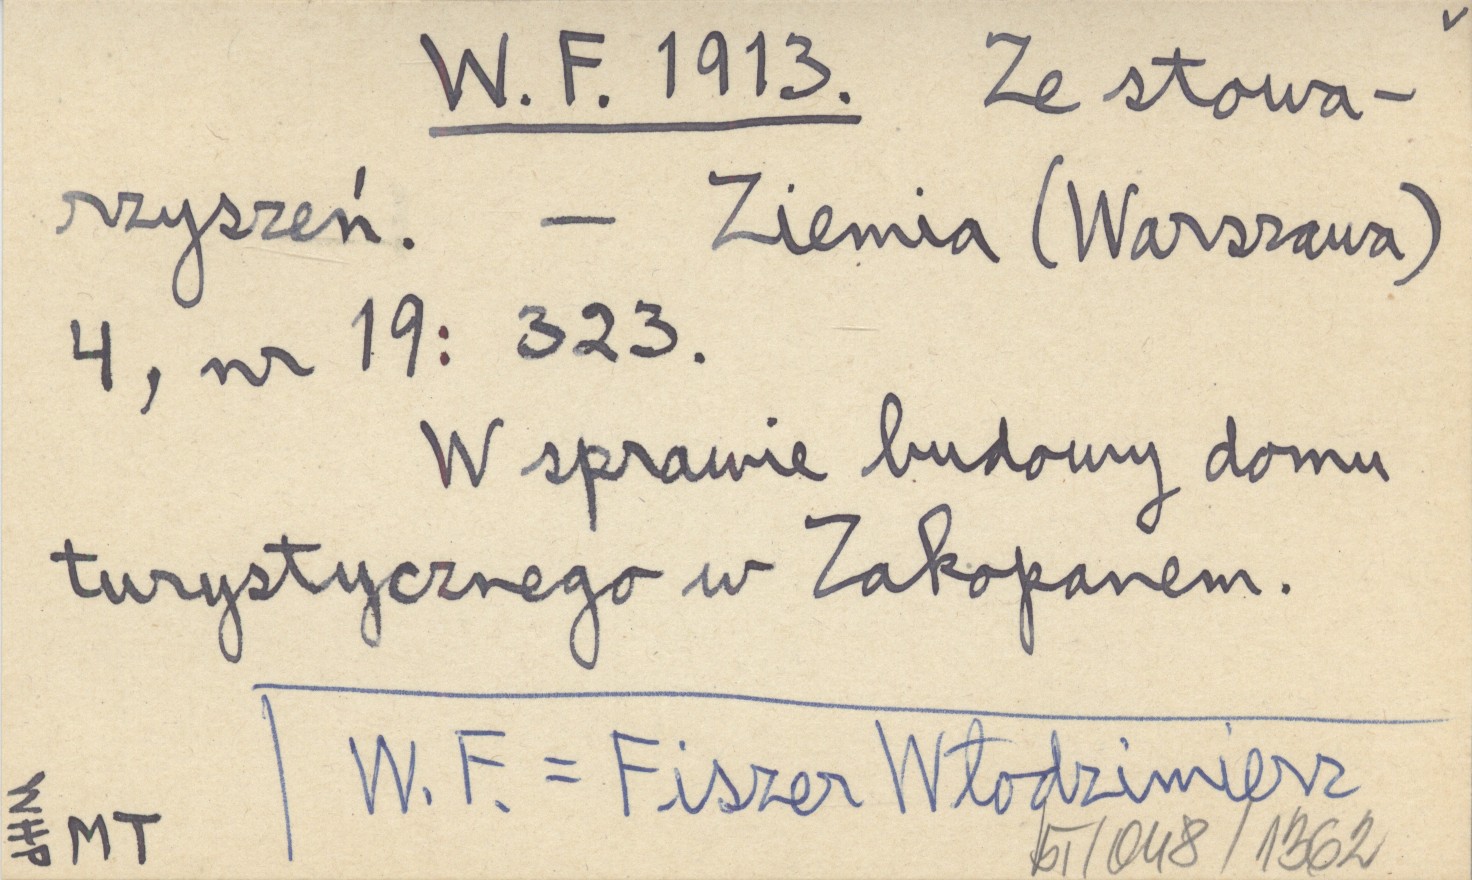 W. F. 1913. Ze stowa-
rzyszeń. — Ziemia (Warszawa)
4, nr 19: 323.
W sprawie budowy domu
turystycznego w Zakopanem.
W. F. = Fiszer Włodzimierz
WHP
MT
/048/1362